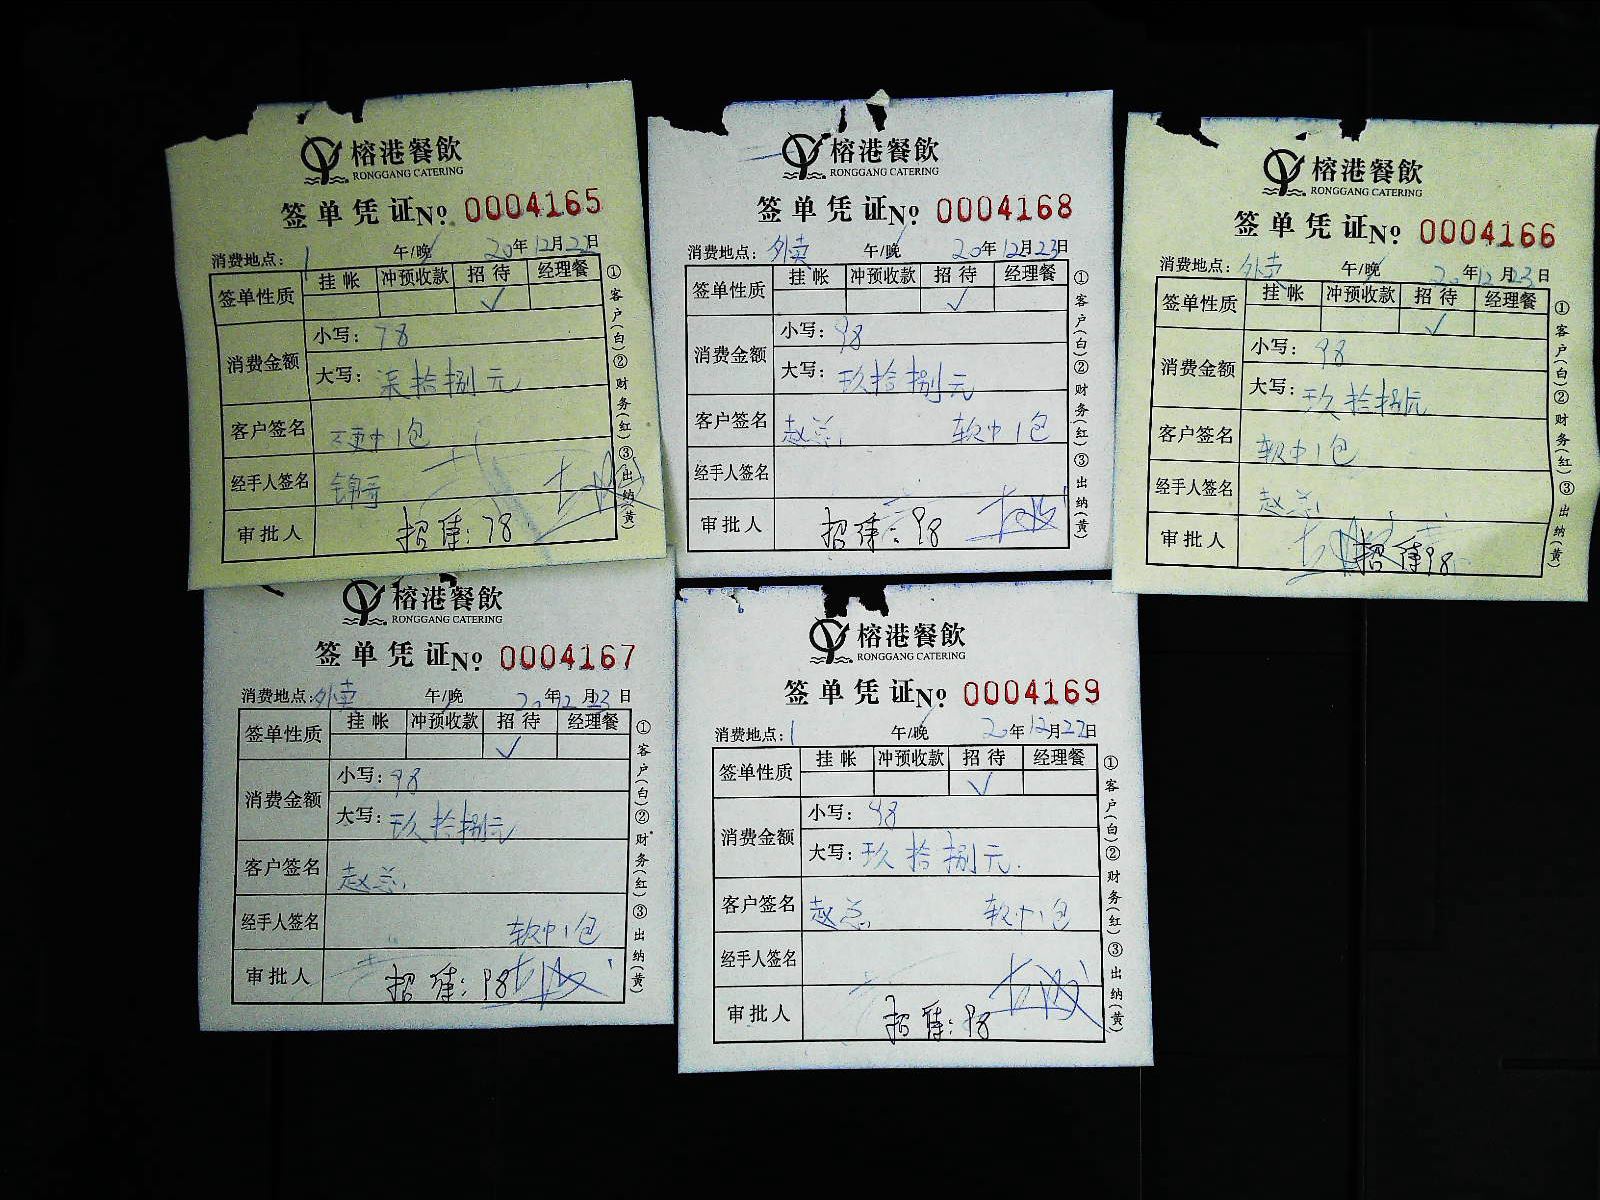 榕港餐飲
RONGGANG CATERING
签单凭证No 0004165
消费地点: 1 午/晚 20年12月23日
签单性质 挂帐 冲预收款 招待 经理餐
✓
消费金额 小写: 78
大写: 柒拾捌元
客户签名 硬中1包
经手人签名 锦哥
审批人 招待: 78
①客户(白)②财务(红)③出纳(黄)
榕港餐飲
RONGGANG CATERING
签单凭证No 0004168
消费地点: 外卖 午/晚 20年12月23日
签单性质 挂帐 冲预收款 招待 经理餐
✓
消费金额 小写: 98
大写: 玖拾捌元
客户签名 赵总 软中1包
经手人签名
审批人 招待: 98
①客户(白)②财务(红)③出纳(黄)
榕港餐飲
RONGGANG CATERING
签单凭证No 0004166
消费地点: 外卖 午/晚 20年12月23日
签单性质 挂帐 冲预收款 招待 经理餐
✓
消费金额 小写: 98
大写: 玖拾捌元
客户签名 软中1包
经手人签名 赵总
审批人 招待98
①客户(白)②财务(红)③出纳(黄)
榕港餐飲
RONGGANG CATERING
签单凭证No 0004167
消费地点: 外卖 午/晚 20年12月23日
签单性质 挂帐 冲预收款 招待 经理餐
✓
消费金额 小写: 98
大写: 玖拾捌元
客户签名 赵总
经手人签名 软中1包
审批人 招待: 98
①客户(白)②财务(红)③出纳(黄)
榕港餐飲
RONGGANG CATERING
签单凭证No 0004169
消费地点: 1 午/晚 20年12月22日
签单性质 挂帐 冲预收款 招待 经理餐
✓
消费金额 小写: 98
大写: 玖拾捌元
客户签名 赵总 软中1包
经手人签名
审批人 招待: 98
①客户(白)②财务(红)③出纳(黄)